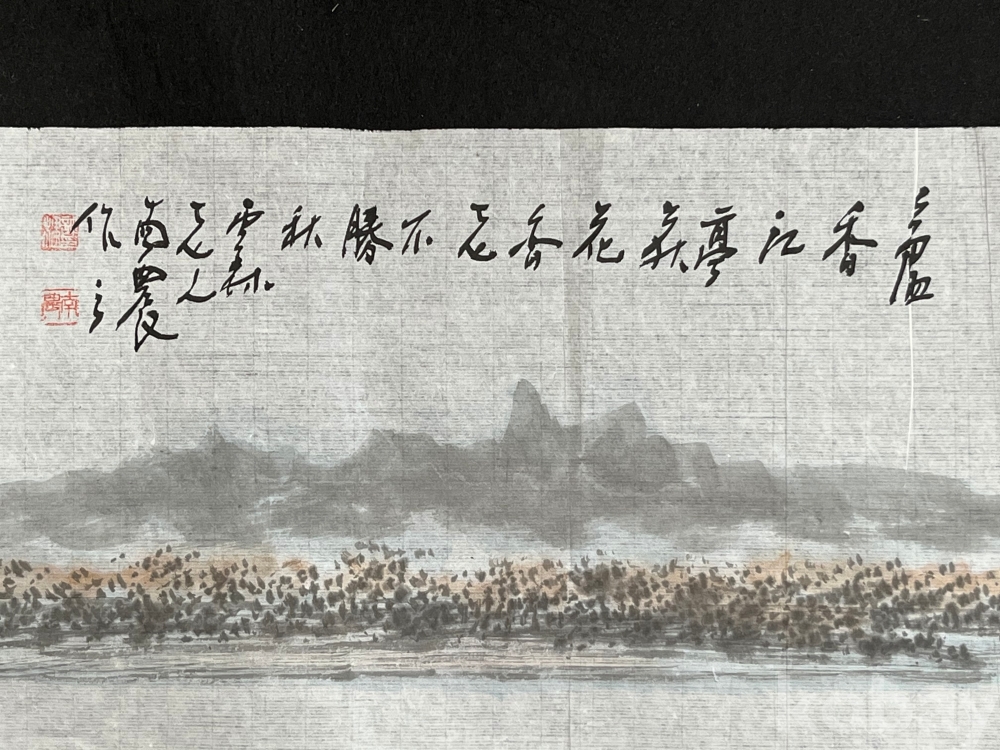 蘆香江亭荻花香老不勝秋
雲林
老人
南農
作之